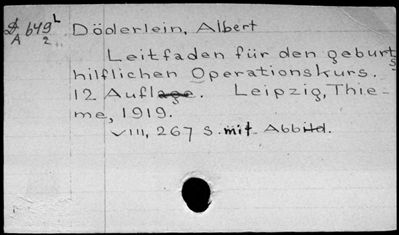 Döderlein, Albert
Leitfaden für den geburts
hilflichen Operationskurs.
12 Auflage. Leipzig, Thie-
me, 1919.
VIII, 267 S. mit Abbild.